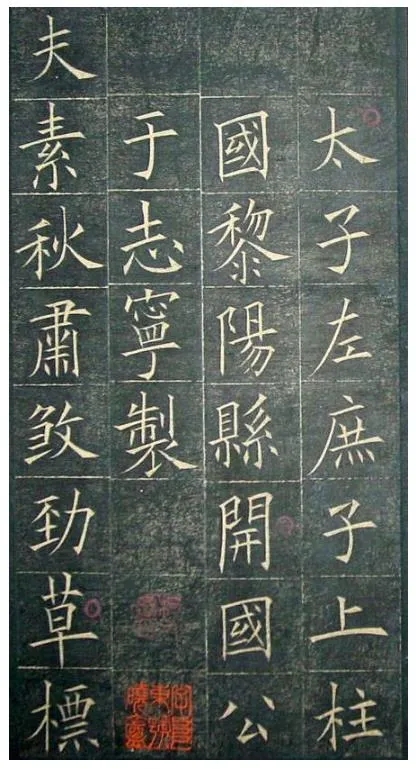 太子左庶子上柱
國黎陽縣開國公
于志寧製
夫素秋肅煞勁草標